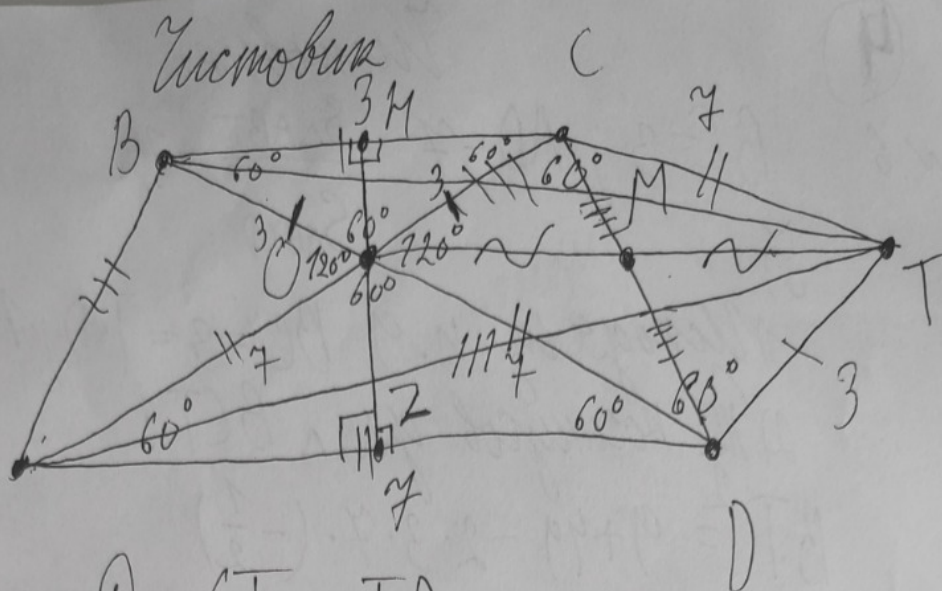 Чистовик
C
3 H
7
B
60°
60°
60°
M
3
3
60°
O
120°
120°
60°
T
7
7
3
60°
60°
60°
Z
7
D